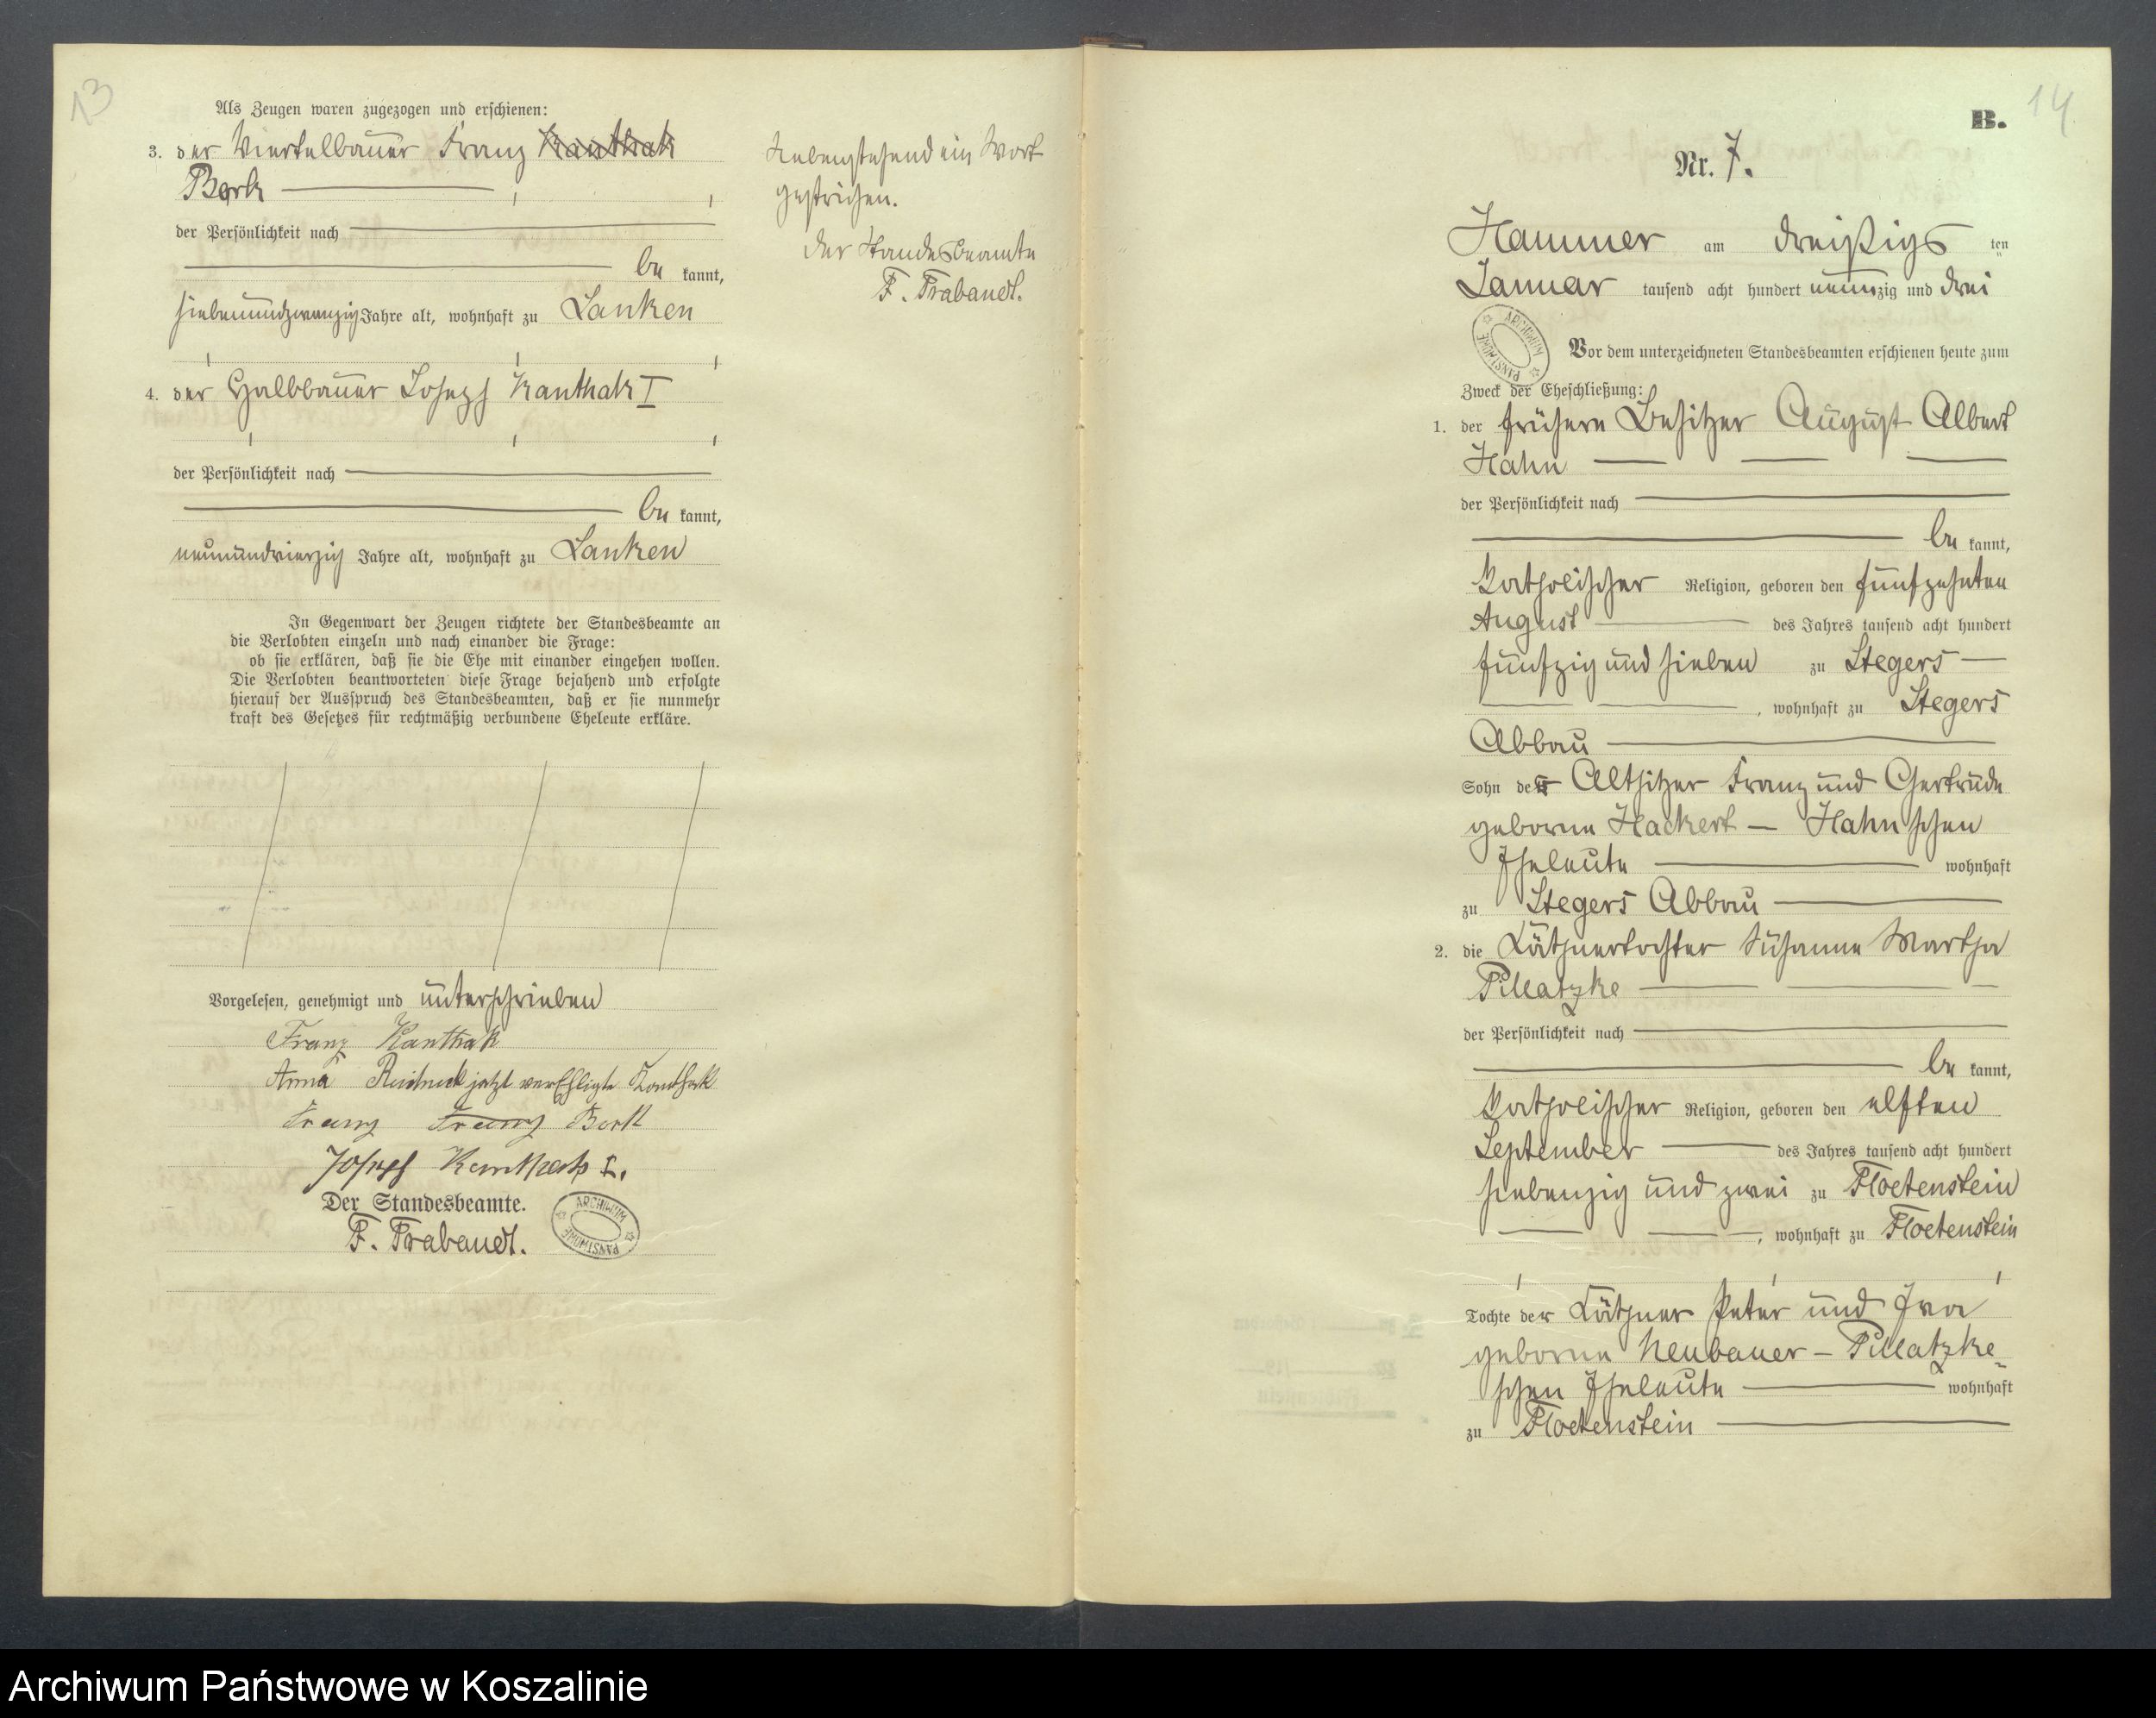 13
Als Zeugen waren zugezogen und erschienen:
3. der Viertelbauer Franz Kanthak
Bork
der Persönlichkeit nach
be kannt,
siebenundzwanzig Jahre alt, wohnhaft zu Lanken
4. der Halbbauer Joseph Kanthak I
der Persönlichkeit nach
be kannt,
neunundvierzig Jahre alt, wohnhaft zu Lanken
In Gegenwart der Zeugen richtete der Standesbeamte an
die Verlobten einzeln und nach einander die Frage:
ob sie erklären, daß sie die Ehe mit einander eingehen wollen.
Die Verlobten beantworteten diese Frage bejahend und erfolgte
hierauf der Ausspruch des Standesbeamten, daß er sie nunmehr
kraft des Gesetzes für rechtmäßig verbundene Eheleute erkläre.
Vorgelesen, genehmigt und unterschrieben
Franz Kanthak
Anna jetzt verehligte Kanthak
Franz Franz Bork
Joseph Kanthak I.
Der Standesbeamte.
F. Trabandt.
ARCHIWUM PAŃSTWOWE
Nebenstehend ein Wort
gestrichen.
Der Standesbeamte
F. Trabandt.
14
B.
Nr. 7.
Hammer am dreißigs ten
Januar tausend acht hundert neunzig und drei
ARCHIWUM PAŃSTWOWE
Vor dem unterzeichneten Standesbeamten erschienen heute zum
Zweck der Eheschließung:
1. der frühere Besitzer August Albert
Hahn
der Persönlichkeit nach
be kannt,
katholischer Religion, geboren den fünfzehnten
August des Jahres tausend acht hundert
fünfzig und sieben zu Stegers
, wohnhaft zu Stegers
Abbau
Sohn der Altsitzer Franz und Gertrude
geborne Hackert – Hahn'schen
Eheleute wohnhaft
zu Stegers Abbau
2. die Käthnertochter Susanna Martha
Pillatzke
der Persönlichkeit nach
be kannt,
katholischer Religion, geboren den elften
September des Jahres tausend acht hundert
siebenzig und zwei zu Floetenstein
, wohnhaft zu Floetenstein
Tochte der Käthner Peter und Eva
geborne Neubauer – Pillatzke-
schen Eheleute wohnhaft
zu Floetenstein
Archiwum Państwowe w Koszalinie